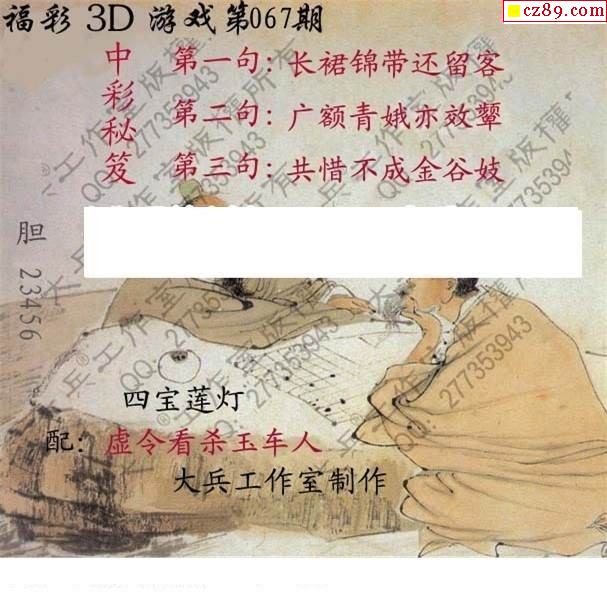 cz89.com
福彩 3D 游戏第067期
中彩秘笈
第一句：长裙锦带还留客
第二句：广额青娥亦效颦
第三句：共惜不成金谷妓
胆 23456
四宝莲灯
配：虚令看杀玉车人
大兵工作室制作
大兵®工作室版权所有
QQ：277353943